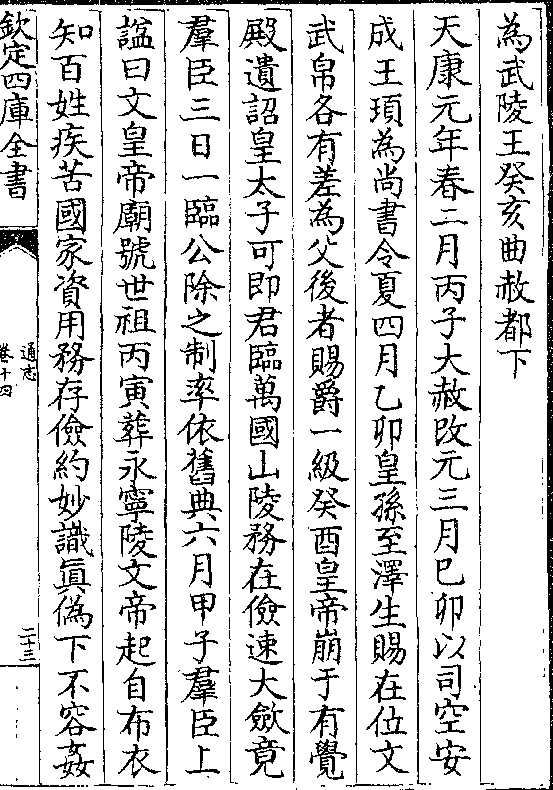 為武陵王癸亥曲赦都下
天康元年春二月丙子大赦改元三月已卯以司空安
成王頊為尚書令夏四月乙卯皇孫至澤生賜在位文
武帛各有差為父後者賜爵一級癸酉皇帝崩于有覺
殿遺詔皇太子可即君臨萬國山陵務在儉速大斂竟
羣臣三日一臨公除之制率依舊典六月甲子羣臣上
諡曰文皇帝廟號世祖丙寅葬永寧陵文帝起自布衣
知百姓疾苦國家資用務存儉約妙識眞偽下不容姦
欽定四庫全書
通志
卷十四
二十三